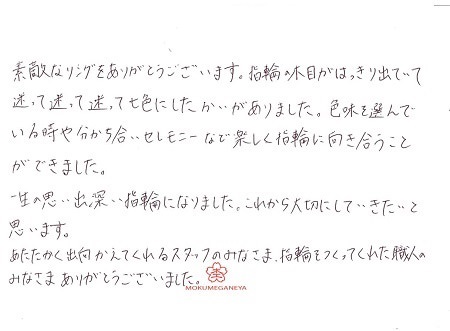 素敵なリングをありがとうございます。指輪の木目がはっきり出ていて
迷って迷って迷って七色にしたかいがありました。色味を選んで
いる時や分かち合いセレモニーなど楽しく指輪に向き合うこと
ができました。
一生の思い出深い指輪になりました。これから大切にしていきたいと
思います。
あたたかく出向かえてくれるスタッフのみなさま、指輪をつくってくれた職人の
みなさまありがとうございました。
MOKUMEGANEYA